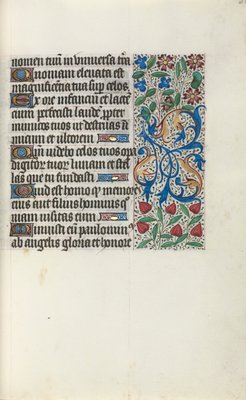 nomen tuū in vniuersa tr̄a
Quoniam eleuata est
magnificētia tua sup celos
Ex ore infanciū et lactē
cium perfecisti laudē ꝓpter
inimicos tuos ut destruas in
imicum et ultorem
Qm̄ videbo celos tuos opa
digitor tuor lunam et stel
las que tu fundasti
Quid est homo q̄ memor
eius aut filius hominis q̄
niam visitas eum
Minuisti eū paulominᵒ
ab angelis gloria et honore